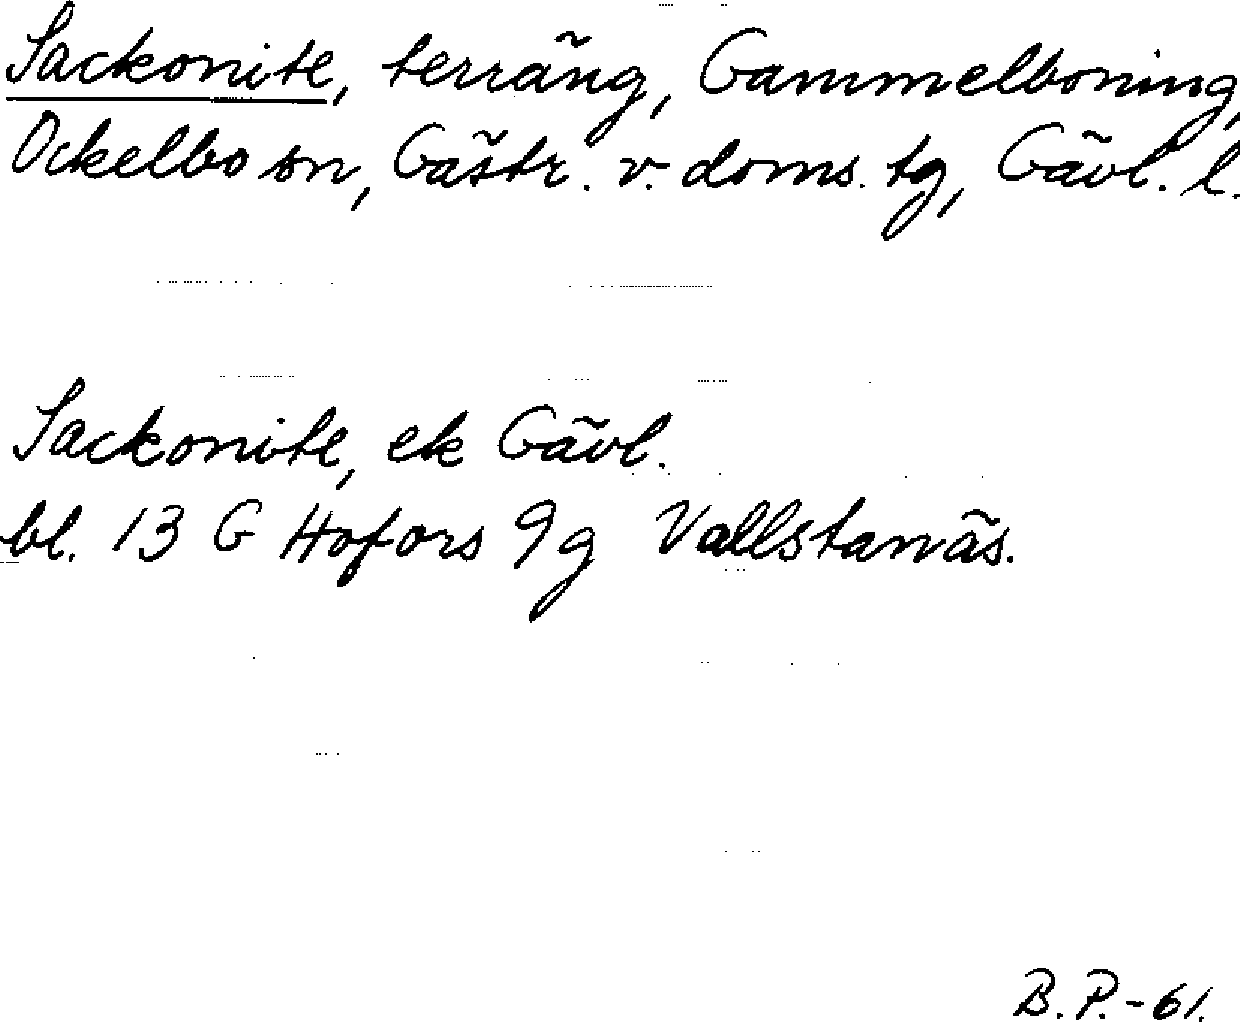 Sackonite, terräng, Gammelboning,
Ockelbo sn, Gästr. v. doms. tg, Gävl. l.
Sackonite, ek Gävl.
bl. 13 G Hofors 9g Vallstanäs.
B.P.-61.